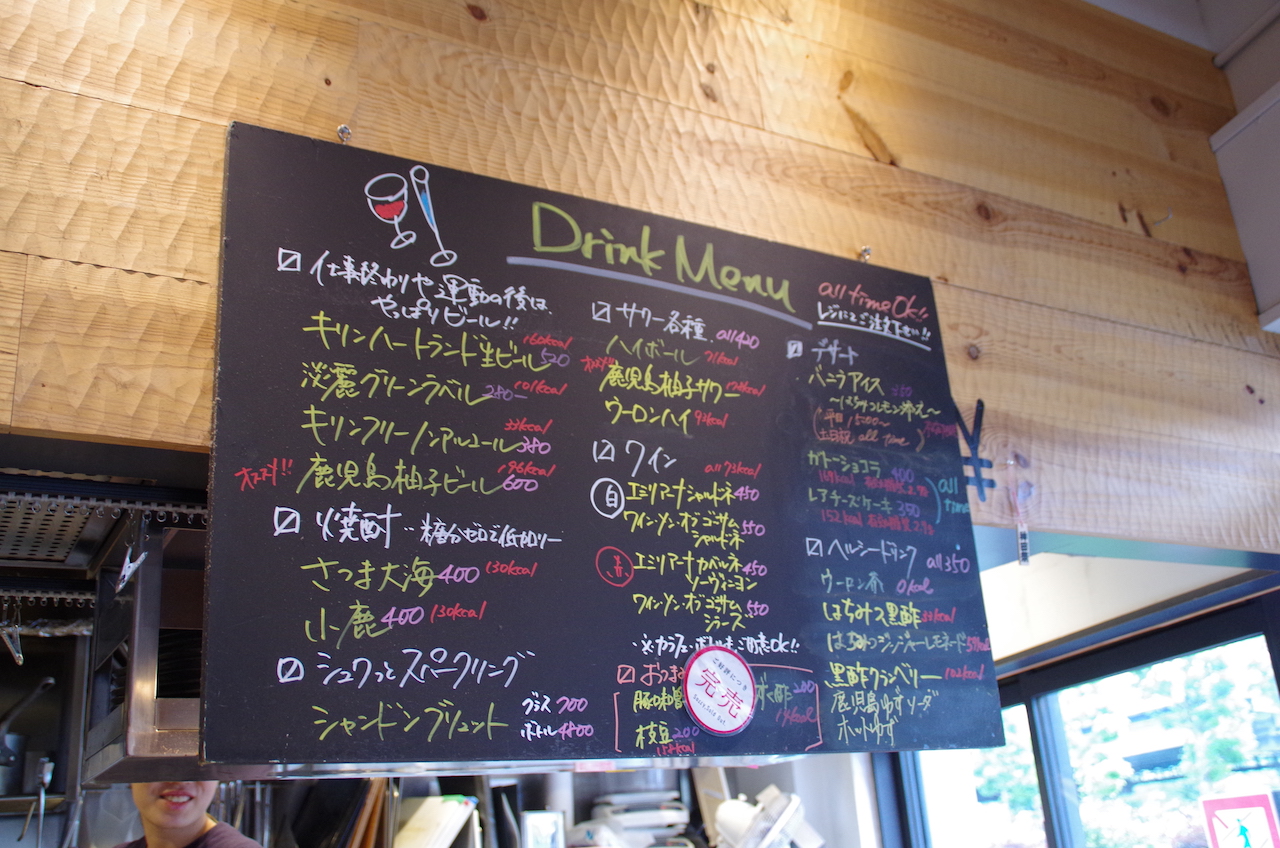 Drink Menu
仕事終わりや運動の後は、
やっぱりビール!!
キリンハートランド生ビール 160kcal 520
淡麗グリーンラベル 101kcal 280-
キリンフリーノンアルコール 33kcal 380
オススメ!! 鹿児島柚子ビール 196kcal 600
焼酎‥糖分ゼロで低カロリー
さつま大海 400 130kcal
小鹿 400 130kcal
シュワっとスパークリング
シャンドンブリュット グラス 700
ボトル 4800
サワー各種. all420
ハイボール 71kcal
オススメ!! 鹿児島柚子サワー
ウーロンハイ 93kcal
ワイン all73kcal
白 エミリアーナシャルドネ 450
ワイン・メン・オブ・ゴッサム 550
シャルドネ
赤 エミリアーナカベルネ 450
ソーヴィニヨン
ワイン・メン・オブ・ゴッサム 550
シラーズ
※カラフェ・ボトルもご用意OK!!
おつま
ご好評につき
完売
Sorry, Sold Out
酢 200
14kcal
枝豆 200
all time Ok!!
レジにてご注文下さい!!
デザート
バニラアイス 350
〜はちみつレモン添え〜
(平日 15:00〜
土日祝 all time)
ガトーショコラ 400
レアチーズケーキ 350
all time
ヘルシードリンク all350
ウーロン茶 0kcal
はちみつ黒酢 33kcal
はちみつジンジャーレモネード
黒酢クランベリー 102kcal
鹿児島ゆずソーダ
ホットゆず
¥